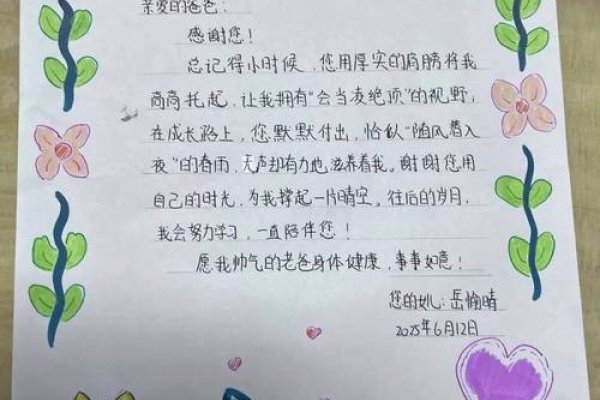 亲爱的爸爸：
感谢您！
总记得小时候，您用厚实的肩膀将我
高高托起，让我拥有“会当凌绝顶”的视野；
在成长路上，您默默付出，恰似“随风潜入
夜”的春雨，无声却有力地滋养着我。谢谢您用
自己的时光，为我撑起一片晴空。往后的岁月，
我会努力学习，一直陪伴您！
愿我帅气的老爸身体健康，事事如意！
您的女儿：岳愉晴
2025年6月12日